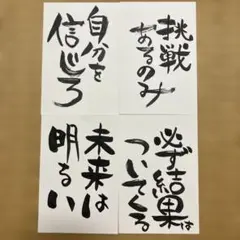 自分を
信じろ
挑戦
あるのみ
未来は
明るい
必ず結果は
ついてくる